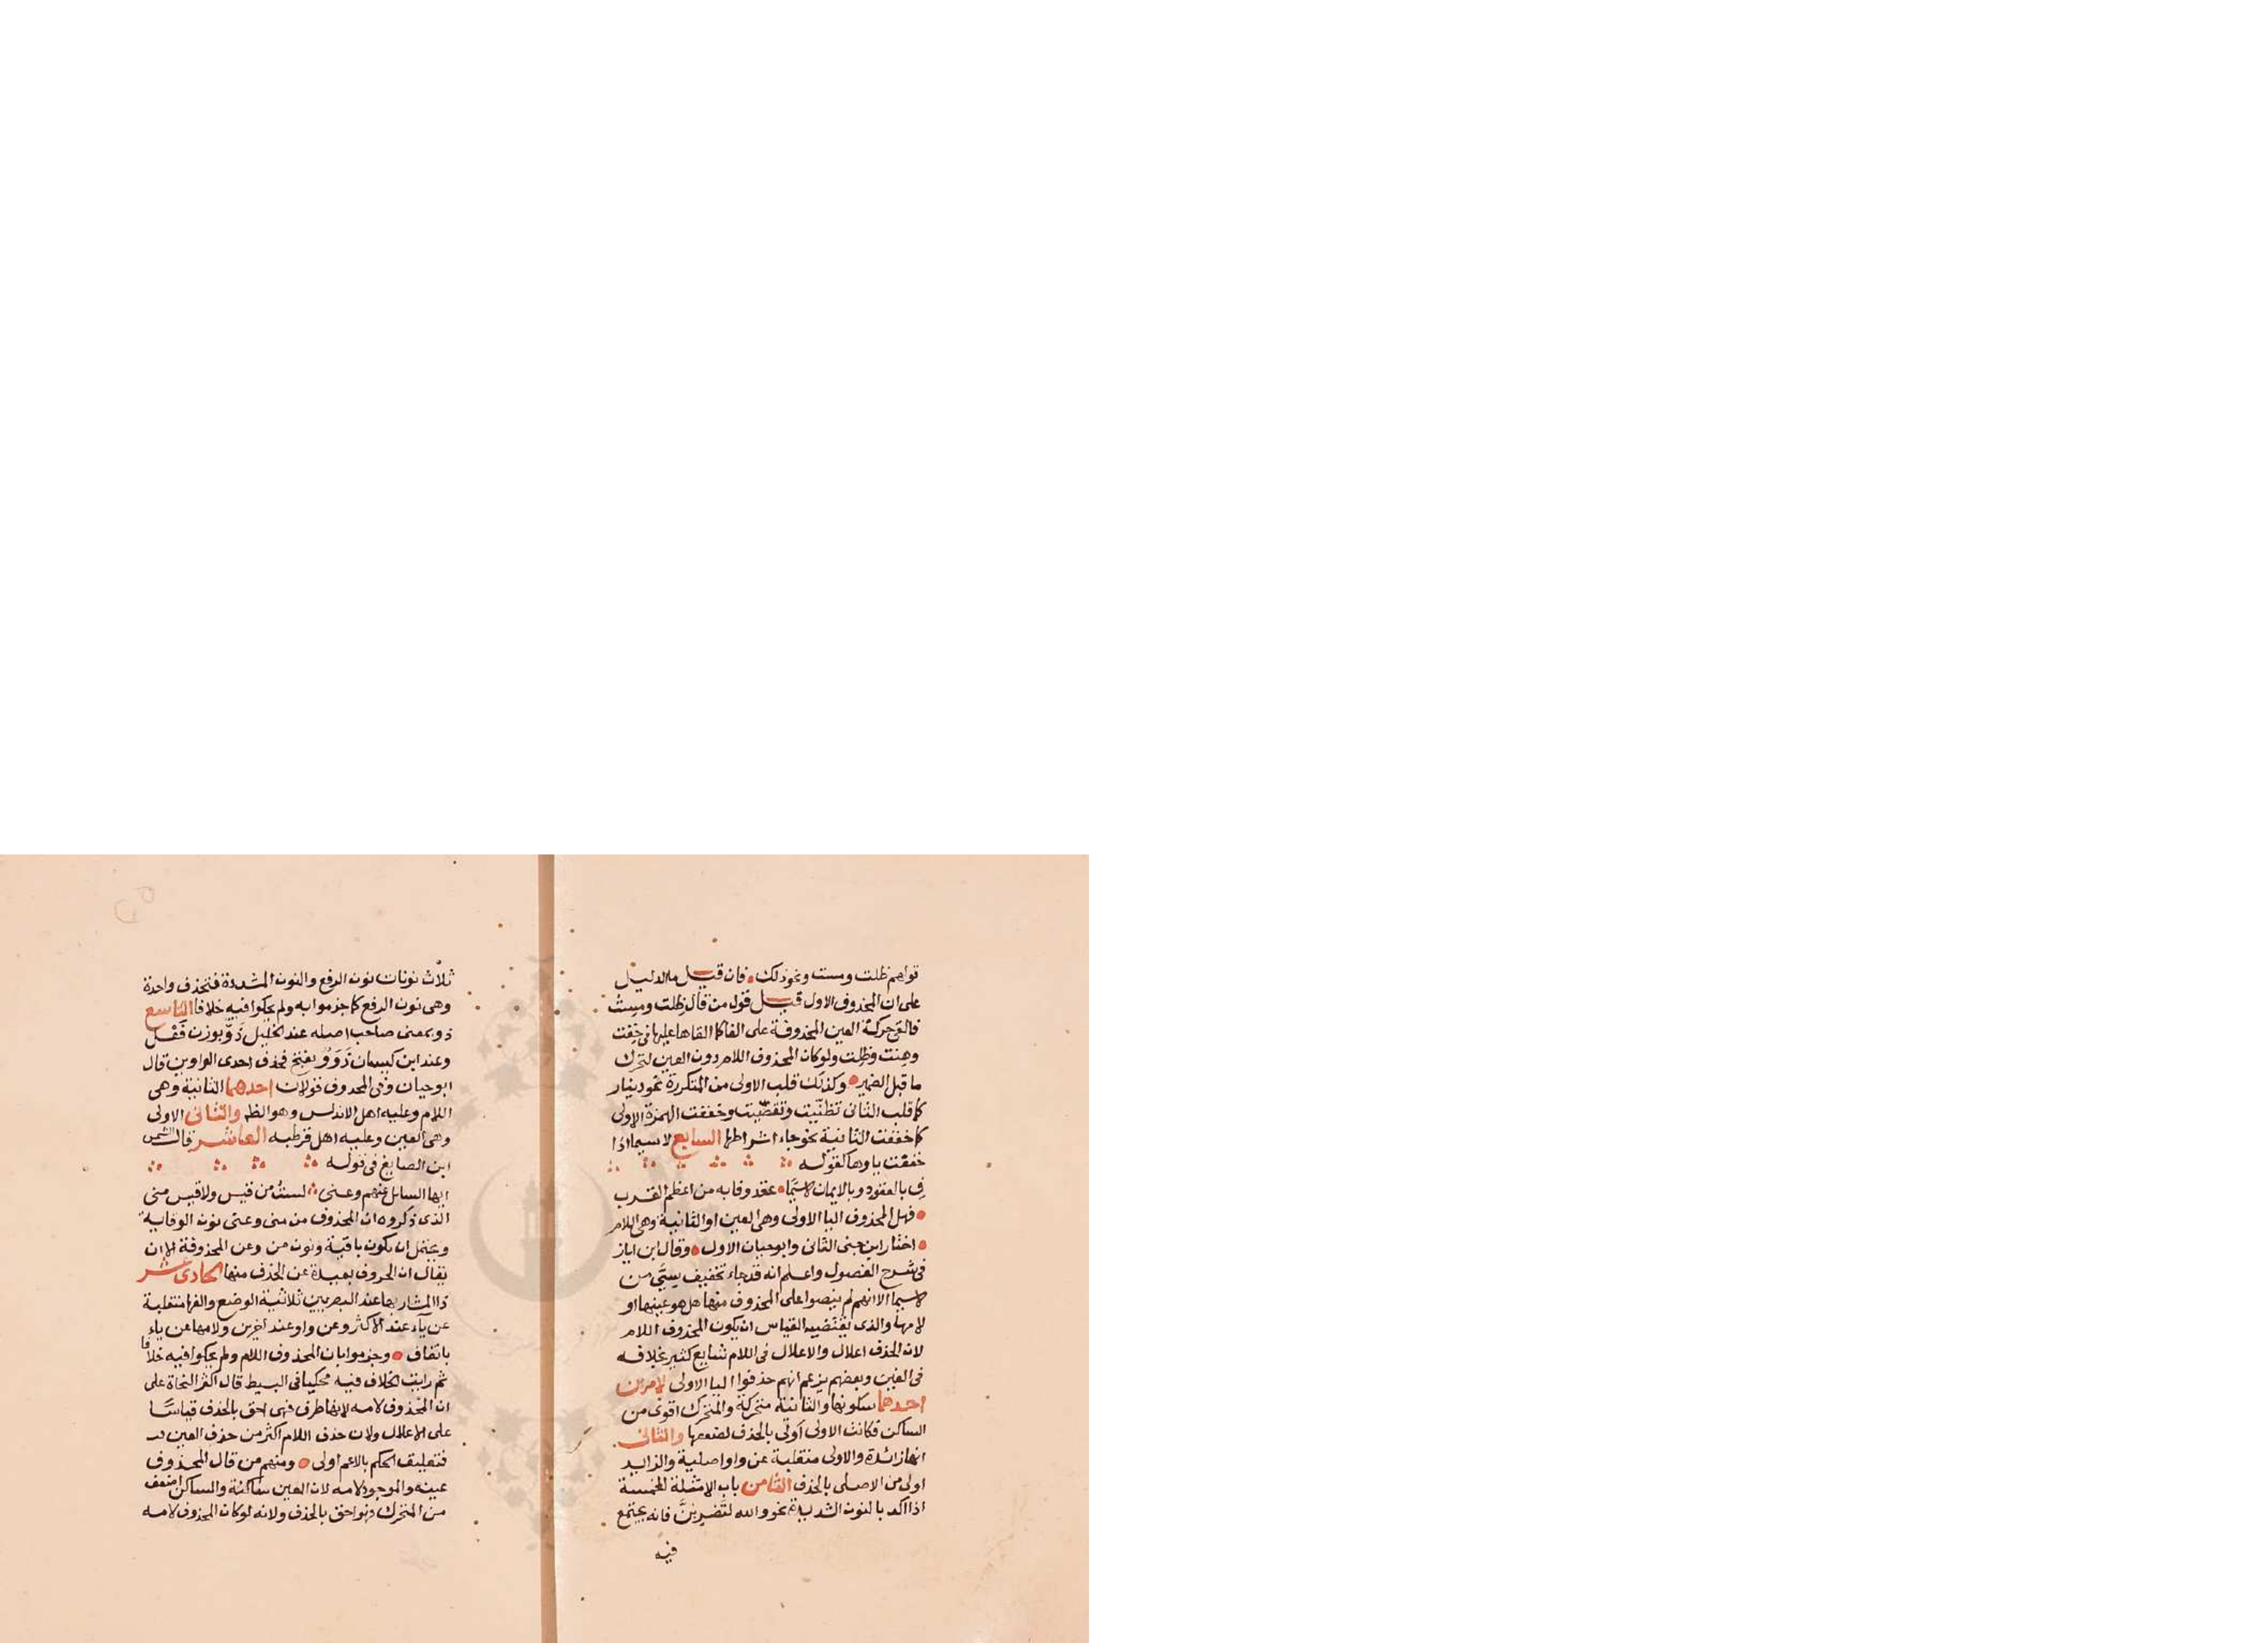 قولهم ظلت ومست ونحو ذلك فان قيل ما الدليل
على ان المحذوف الاول قيل قول من قال ظِلت ومِست
فالقى حركة العين المحذوفة على الفا كما القاها عليها فى خِفت
وهِنت وظِلت ولو كان المحذوف اللام دون العين لتحرك
ما قبل الضمير وكذلك قلب الاولى من المتكررة نحو دينار
كما قلب الثانى تظنّيت وتقضّيت وخففت الهمزة الاولى
كما خففت الثانية نحو جاء اشراطها السابع لاسيما اذا
خففت ياوها كقوله
فِ بالعقود وبالايمان لاسِيَما عقد وفا به من اعظم القرب
فهل المحذوف اليا الاولى وهى العين او الثانية وهى اللام
اختار ابن جنى الثانى وابو حيان الاول وقال ابن اياز
فى شرح الفصول واعلم انه قد جاء تخفيف سِيَّى من
لاسيما الا انهم لم ينصوا على المحذوف منها هل هو عينها او
لامها والذى يقتضيه القياس ان يكون المحذوف اللام
لان الحذف اعلال والاعلال فى اللام شايع كثير بخلافه
فى العين وبعضهم يزعم انهم حذفوا اليا الاولى لامرين
احدهما سكونها والثانية متحركة والمتحرك اقوى من
الساكن فكانت الاولى أولى بالحذف لضعفها والثانى
انها زائدة والاولى منقلبة عن واو اصلية والزايد
اولى من الاصلى بالحذف الثامن باب الامثلة الخمسة
اذا اكد بالنون الشديدة نحو والله لتضربنَّ فانه يجتمع
فيه
ثلاث نونات نون الرفع والنون المشددة فتحذف واحدة
وهى نون الرفع كما جزموا به ولم يحكوا فيه خلافا التاسع
ذو بمعنى صاحب اصله عند الخليل ذَوّ بوزن فَعْل
وعند ابن كيسان ذَوَوٌ بفتح فحذف احدى الواوين قال
ابو حيان وفى المحذوف قولان احدهما الثانية وهى
اللام وعليه اهل الاندلس وهو الظ والثانى الاولى
وهى العين وعليه اهل قرطبه العاشر قال الشمس
ابن الصايغ فى قوله
ايها السايل عنهم وعنى لستُ من قيس ولا قيس منى
الذى ذكروه ان المحذوف من منى وعنى نون الوقاية
ويحتمل ان يكون باقية ونون من وعن المحذوفة الا ان
يقال ان الحروف بعيدة عن الحذف منها الحادى عشر
ذا المشار بها عند البصريين ثلاثية الوضع والفها منقلبة
عن ياء عند الاكثر وعن واو عند اخرين ولامها عن ياء
باتفاق وجزموا بان المحذوف اللام ولم يحكوا فيه خلافا
ثم رايت الخلاف فيه محكيا فى البسيط قال اكثر النحاة على
ان المحذوف لامه لانها طرف فهى احق بالحذف قياسًا
على الاعلال ولان حذف اللام اكثر من حذف العين
فتعليق الحكم بالاعم اولى ومنهم من قال المحذوف
عينه والموجود لامه لان العين ساكنة والساكن اضعف
من المتحرك فهو احق بالحذف ولانه لو كان المحذوف لامه